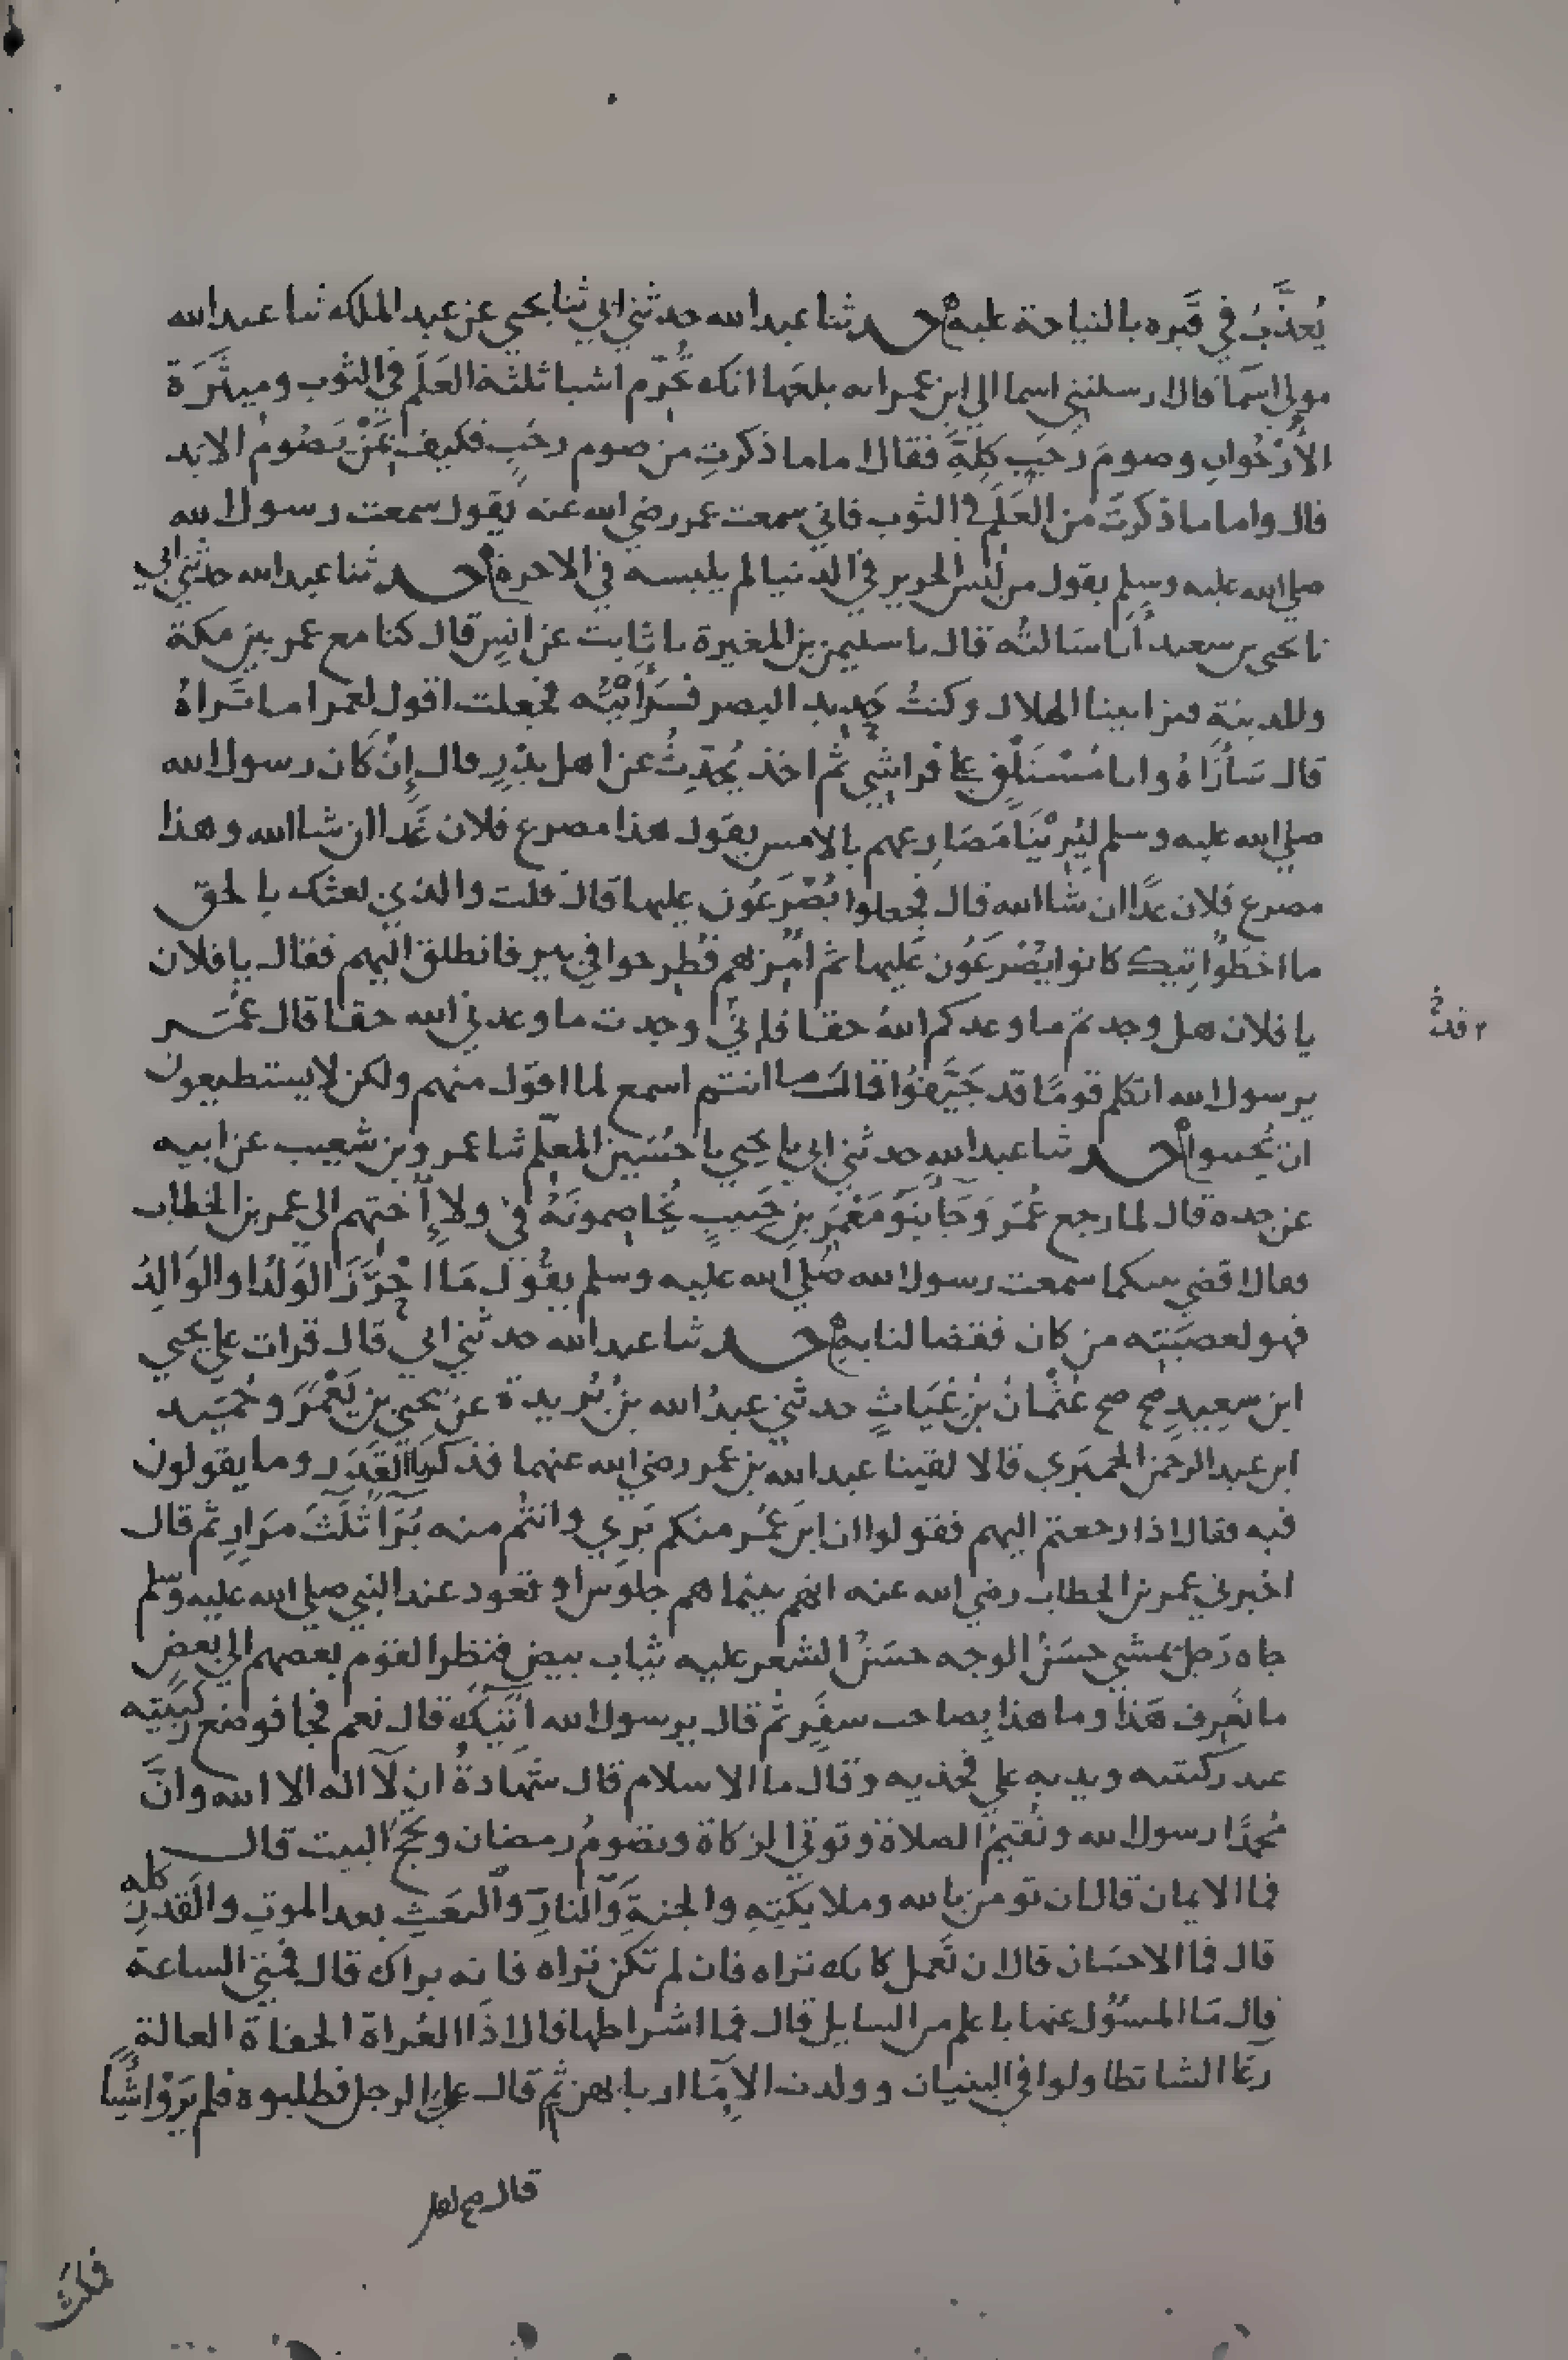 يُعذَّبُ في قبره بالنياحة عليه حدثنا عبد الله حدثني ابي ثنا يحيي عن عبد الملك ثنا عبد الله
مولي اسما قال ارسلتني اسما الي ابن عمر انه بلغها انك تُحَرِّم اشيا ثلثة العَلَم في الثوب وميثَرَة
الأُرْجُوانِ وصومَ رَجَبٍ كلِّهِ فقال اما ما ذكرتِ من صوم رجَبٍ فكيف بمَنْ يَصُومُ الابد
قال واما ما ذكرتَ من العَلَم في الثوب فاني سمعت عمر رضي الله عنه يقول سمعت رسول الله
صلي الله عليه وسلم يقول من لبس الحرير في الدنيا لم يلبسه في الاخرة حدثنا عبد الله حدثني ابي
نا يحيي بن سعيد أنا سالتُه قال نا سليمن بن المغيرة نا ثابت عن انسٍ قال كنا مع عمر بين مكة
والمدينة فتراينا الهلال وكنتُ حَديد البصر فَرَأَيْتُه فجعلت اقول لعمر اما تَراهُ
قال سَأَرَاهُ وانا مُسْتَلْقٍ علي فراشي ثم اخذ يُحدِّثُ عن اهل بدْرٍ قال إِنْ كَان رسول الله
صلي الله عليه وسلم ليُرِيْنَا مَصَارِعهم بالامس يقول هذا مصرع فلان غَدا ان شا الله وهذا
مصرع فلان غدًا ان شا الله قال فجعلوا يُصْرَعُون عليها قال قلت والذي بعثك بالحق
ما اخطَوُا تيك كانوا يُصْرَعُون عَليها ثم امر بهم فطُرحوا في بير فانطلق اليهم فقال يا فلان
يا فلان هل وجدتم ما وعدكم اللهُ حقا فاني وجدت ما وعدني الله حقا قال عُمَر
يرسول الله اتكلم قومًا قد جَيَّفُوا قال ما انتم اسمع لما اقول منهم ولكن لا يستطيعون
ان يُجيبوا حدثنا عبد الله حدثني ابي نا يحيي نا حسين المعلّم ثنا عمرو بن شعيب عن ابيه
عن جده قال لما رجع عُمَر وَجَا بَنُو مَعْمَرِ بنِ حَبيبٍ يُخاصِمونَهُ في ولاءِ أختهم الي عمر بن الخطاب
فقال اقضي بينكما سمعت رسول الله صلي الله عليه وسلم يقُول مَا احْرَزَ الوَلدُ او الوَالِدُ
فهو لعصَبَتِه من كان فقضا لنا به حدثنا عبد الله حدثني ابي قال قرات علي يحيي
ابن سعِيدٍ صح صح عثْمانُ بنُ غيَاثٍ حدثني عبدُ الله بنُ بُريدة عن يحيي بن يَعْمَرَ وحُمَيد
ابن عبد الرحمن الحميَري قالا لقينا عبد الله بن عمر رضي الله عنهما فذكرنا القَدَر وما يقولون
فيه فقال اذا رجعتم اليهم فقولوا ان ابنَ عُمر منكم بَرِي وانتُم منه بُرَآ ثَلَثَ مرَارٍ ثم قال
اخبرني عمر بن الخطاب رضي الله عنه انهم بينما هم جلوس او قعود عند النبي صلي الله عليه وسلم
جاه رَجل يمشي حسَنُ الوجه حسَنُ الشعر عليه ثياب بيض فنظر القوم بعضهم الي بعض
ما نعْرِف هَذا وما هذا بصاحب سفَرٍ ثم قال يرسول الله اتيك قال نعم فجا فوضع ركبتيه
عند ركبتيه ويديه علي فخذيه وقال ما الاسلام قال شَهادةُ ان لا اله الا الله وانَّ
مُحمّدًا رسول الله وتُقيم الصلاة وتوتي الزكاة وتصُومُ رمضان وتَحجُّ البيت قال
فما الايمان قال ان تومن بالله وملايكتِهِ والجنةِ والنارِ والبعَثِ بعد الموتِ والقدر كله
قال فما الاحسَان قال ان تَعمل كانك تراه فان لم تكن تراه فانه يراك قال فمتي الساعة
قال مَا المسئول عنها باعلم من السايل قال فما اشراطها قال اذَا العُراة الحفاة العالة
رعَا الشا تطاولوا في البنيان وولدت الإمَا اربابهن ثم قال عليّ الرجل فطلبوه فلم يَرَوْا شيًا
قال صح
فمكثَ